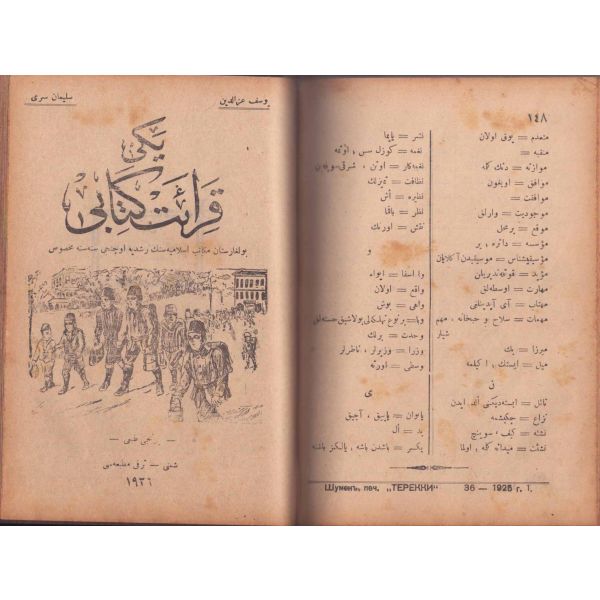 سليمان سری
يوسف عزالدين
يكی
قرائت كتابی
بولغارستان مكاتب اسلاميه‌سنك رشديه اوچنجی سنه‌سنه مخصوص
برنجی طبعی
شمنی — ترقی مطبعه‌سی
١٩٢٦
١٤٨
منعدم = يوق اولان
منقبه =
موازنه = دنك كله
موافق = اويغون
موافقت =
موجوديت = وارلق
موقع = يرمحل
مؤسسه = دائره ، ير
موسيقیشناس = موسيقيدن آكلايان
مؤيد = قوتلنديريلن
مهارت = اوسطه‌لق
مهتاب = آی آيدينلغی
مهمات = سلاح و جبخانه ، مهم
شيلر
ميرزا = بك
ميل = ايستك ، اكيلمه
ن
نائل = ايسته‌ديكنی الده ايدن
نزاع = چكيشمه
نشئه = كيف ، سوينچ
نشئت = ميدانه كله ، اولما
نشر = يايما
نغمه = كوزل سس ، اوتمه
نغمه‌كار = اوتن ، شرقی سويله‌ين
نظافت = تميزلك
نظيره = اش
نظر = باقما
نقش = اورنك
و
وا اسفا = ايواه
واقع = اولان
واهی = بوش
وبا = برنوع تهلكه‌لی بولاشيق خسته‌لق
وحدت = برلك
وزرا = وزيرلر ، ناظرلر
وسطی = اورته
ی
يابوان = يابيق ، آچيق
يد = ال
يكسر = باشدن باشه ، يالكز باشنه
Шуменъ, печ. „ТЕРЕККИ" 36 — 1925 г. 1.